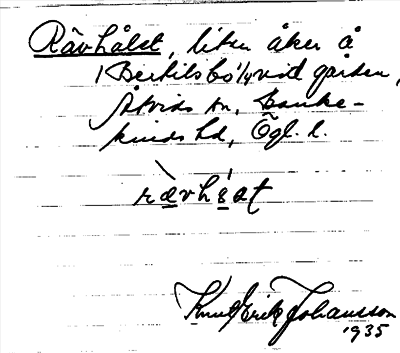 Rävhålet, liten åker å
Bertilsbo 1/4 vid gården,
Åtvids sn, Banke-
kinds hd, Ögl. l.
rævhåat
Knut Erik Johansson
1935